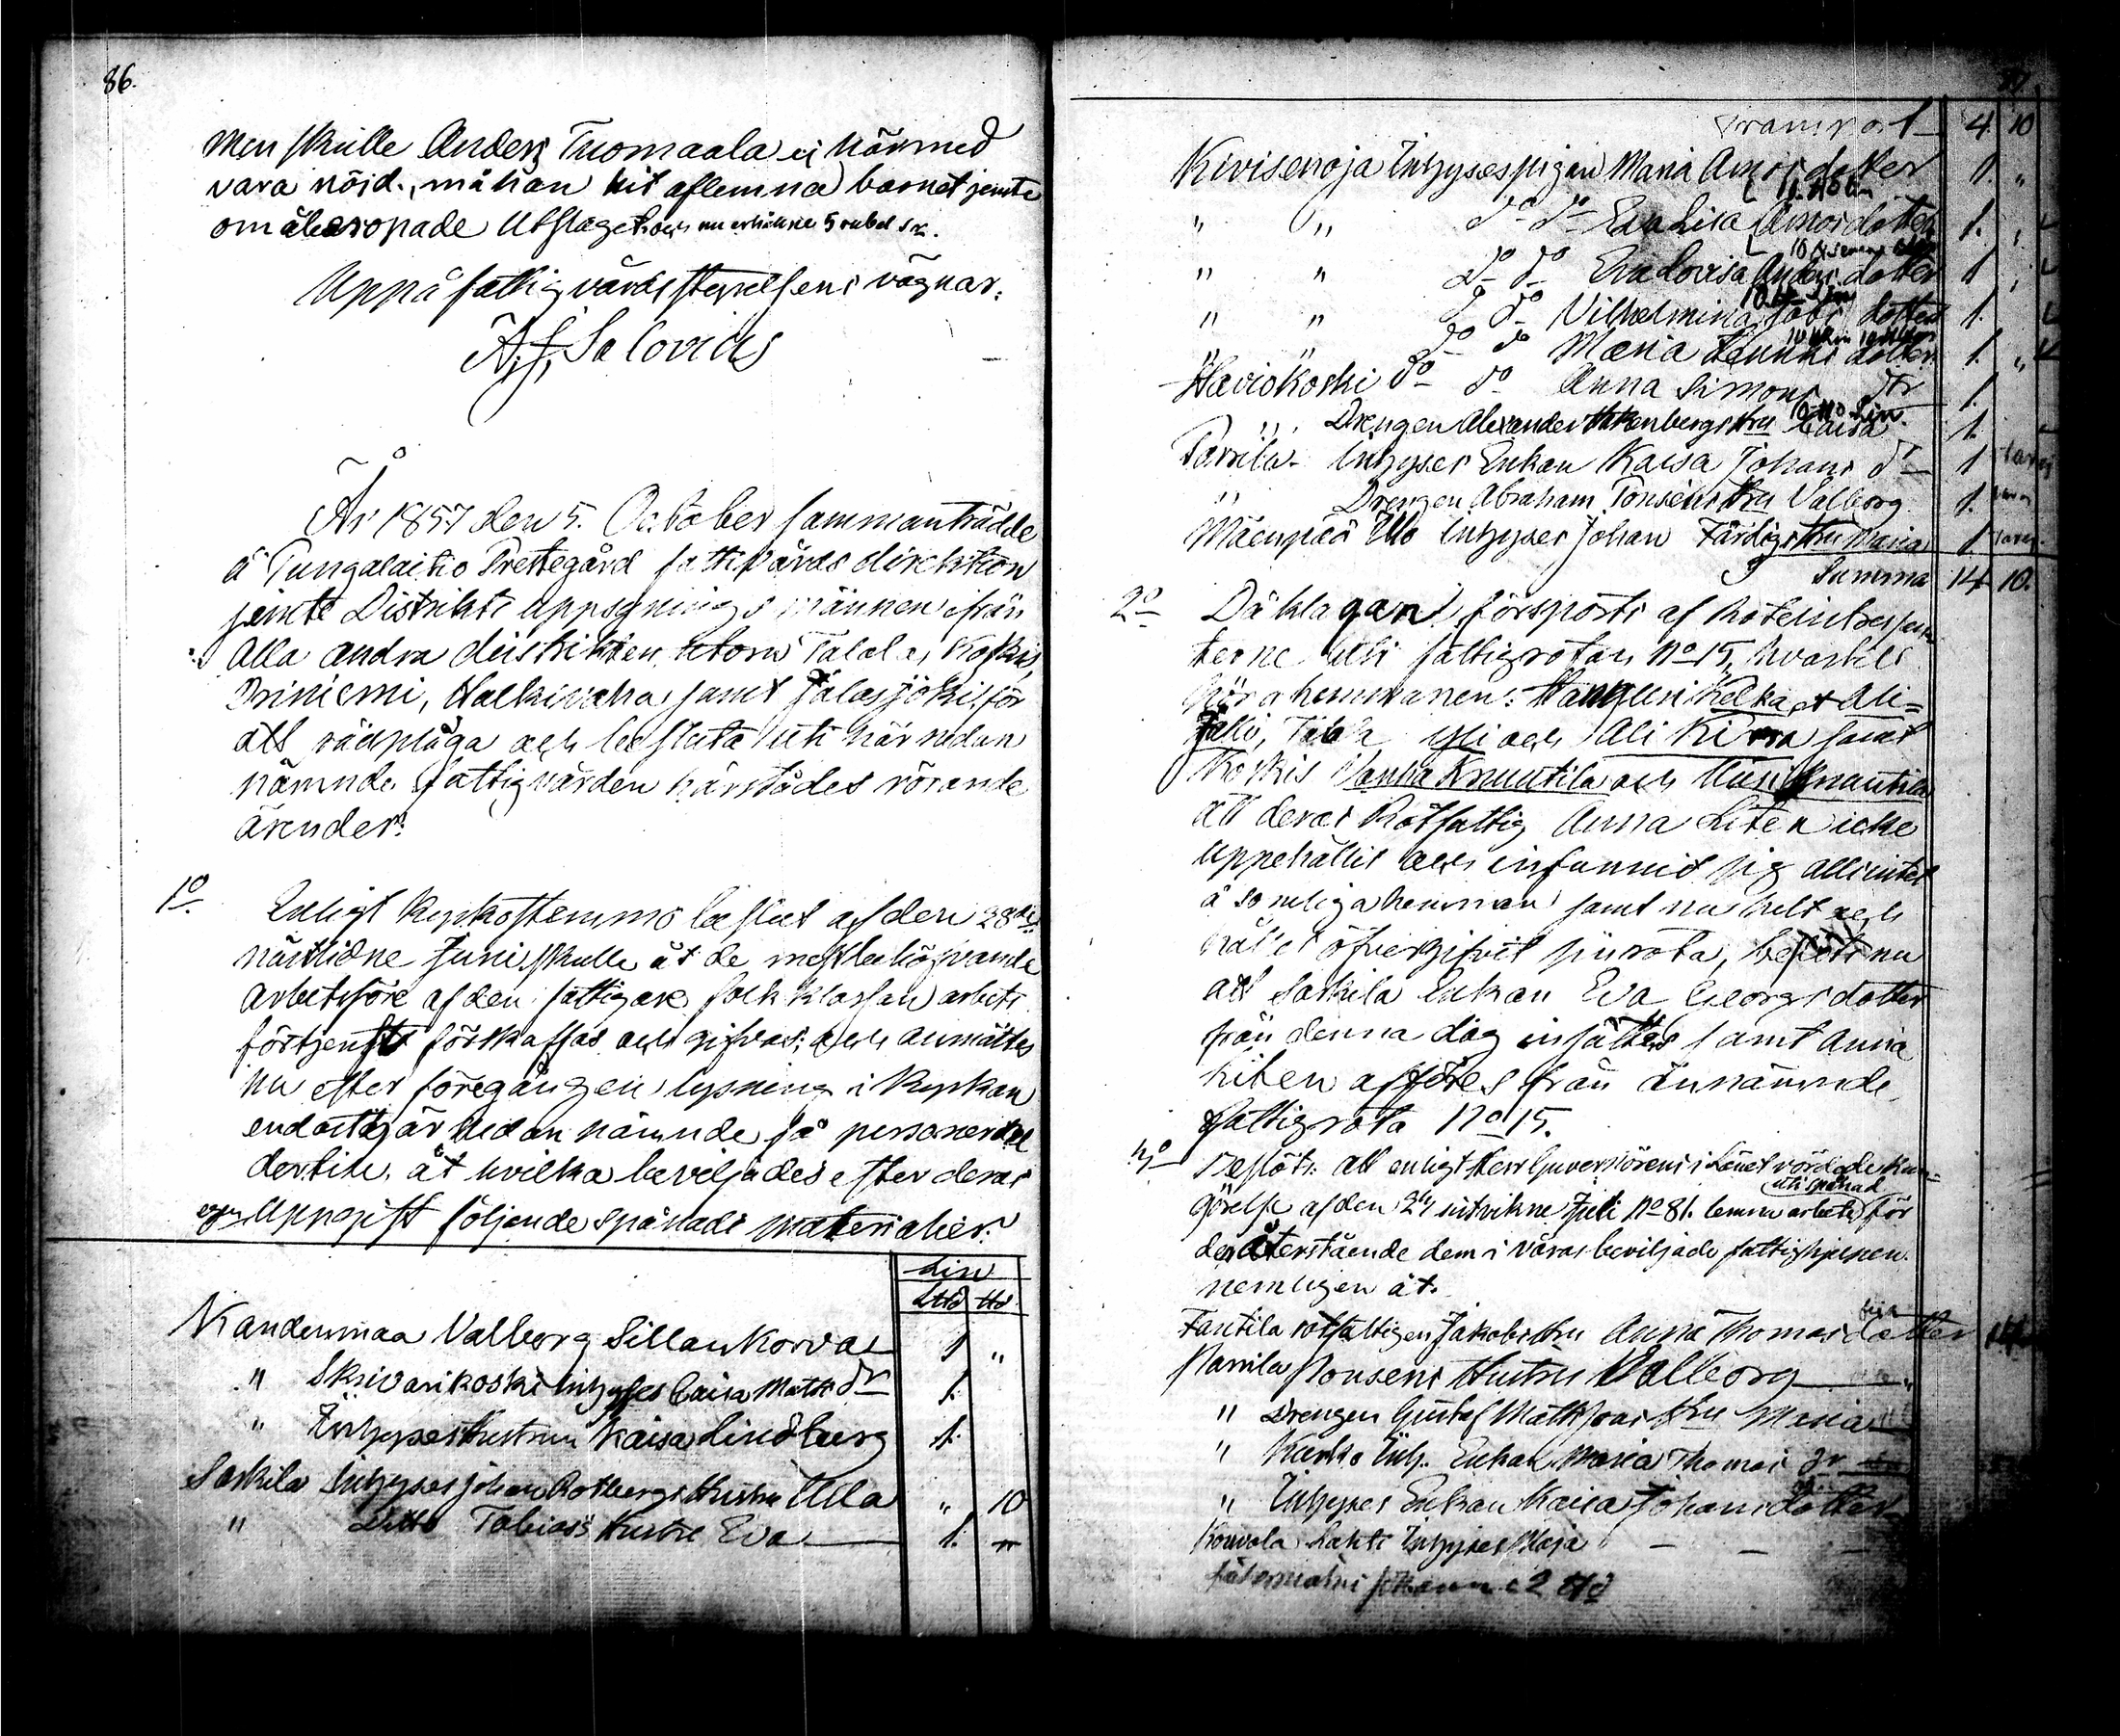 86.
Men skulle Anders Tuomaala ej härmed
vara nöjd, må han hit aflemna barnet jemte
omåberopade Utslaget och nu erhållne 5 rubel S.r.
Uppå fattigvårdsstyrelsens vägnar:
A. J. Salovius
År 1857 den 5. October sammanträdde
å Tungalaitio Prestegård fattivårds direktion
jemte Distrikts uppsynings männen ifrån
alla andra distrikten utom Talala, Koskis,
Iriniemi, Halkivaha samt Jalasjöki, för
att rådpläga och besluta uti här nedan
nämnde fattigvården härstädes rörande
ärender:
1o. Enligt Kyrkostemmo beslut af den 28de
nästlidne Juni skulle åt de mest behöfvande
arbetsföre af den fattigare folk klassan arbets
förtjenst förskaffas och gifvas; och anmälte
nu efter föregången lysning i Kyrkan
endast här nedan nämnde få personer
dertill, åt hvilka beviljades efter deras
egen uppgift följande spånads materialier:
Lin
L℔ ℔
Kandenmaa Valborg Sillankorva 1 "
" Skrivarikoski Inhyses Caisa Matts dr 1.
" Inhyses hustrun Kaisa Lindberg 1.
Saskila Inhyses Johan Rotbergs hustru Ulla " 10
" Ditto Tobias's hustru Eva 1. "
Transport 4. 10
Kivisenoja Inhysespigan Maria Amosdotter 1. "
" " do do Eva Lisa Amosdotter 1. "
" " do do Eva Lovisa Anders dotter 1 "
" " do do Vilhelmina Jobs dotter 1.
" " do do Maria dotter 1. "
Haviokoski do do Anna Simons dtr 1.
" Drengen Alexander Hakenbergs hru Caisa 1.
Parrila Inhyses Enkan Kaisa Johans dr 1
" Drengen Abraham Ponsens hru Valborg 1.
Mäenpää Inhyses Johan Färdigs hru Maria 1
Summa 14 10.
2o Då klagan försports af Roteintressen
terne uti fattigrotan No 15, hvartill
höra hemmanen: Kelka, Ali=
Jalli, Yli och Ali Kirra samt
Koskis Vanha Knuutila och Uusi Knuutila
att deras Rotfattig Anna Liten icke
uppehållit och infunnit sig allenast
å somliga hemman samt nu helt och
hållet öfvergifvit sin rota, beslöts nu
att Saskila Enkan Eva Georgsdotter
från denna dag insättes samt Anna
Liten afföres från ännämnde
fattigrota No 15.
3o Beslöts att enligt Herr Guvernörens i Länet vördade Kun=
görelse af den 2dra sistvikne Juli No 81. lemna arbete uti spånad för
de återstående dem i våras beviljade fattighjelpen
nemligen åt.
Fantila rotfattigen Jakobs hru Anna Thomasdotter
Parrila Ponsens Hustru Valborg
" Drengen Gustaf Mattssons hru Maria
" Inh. Enkan Maria Thomas dr
" Inhyses Enkan Kaisa Johansdotter
Kouvola Lahti Inhyses Maja